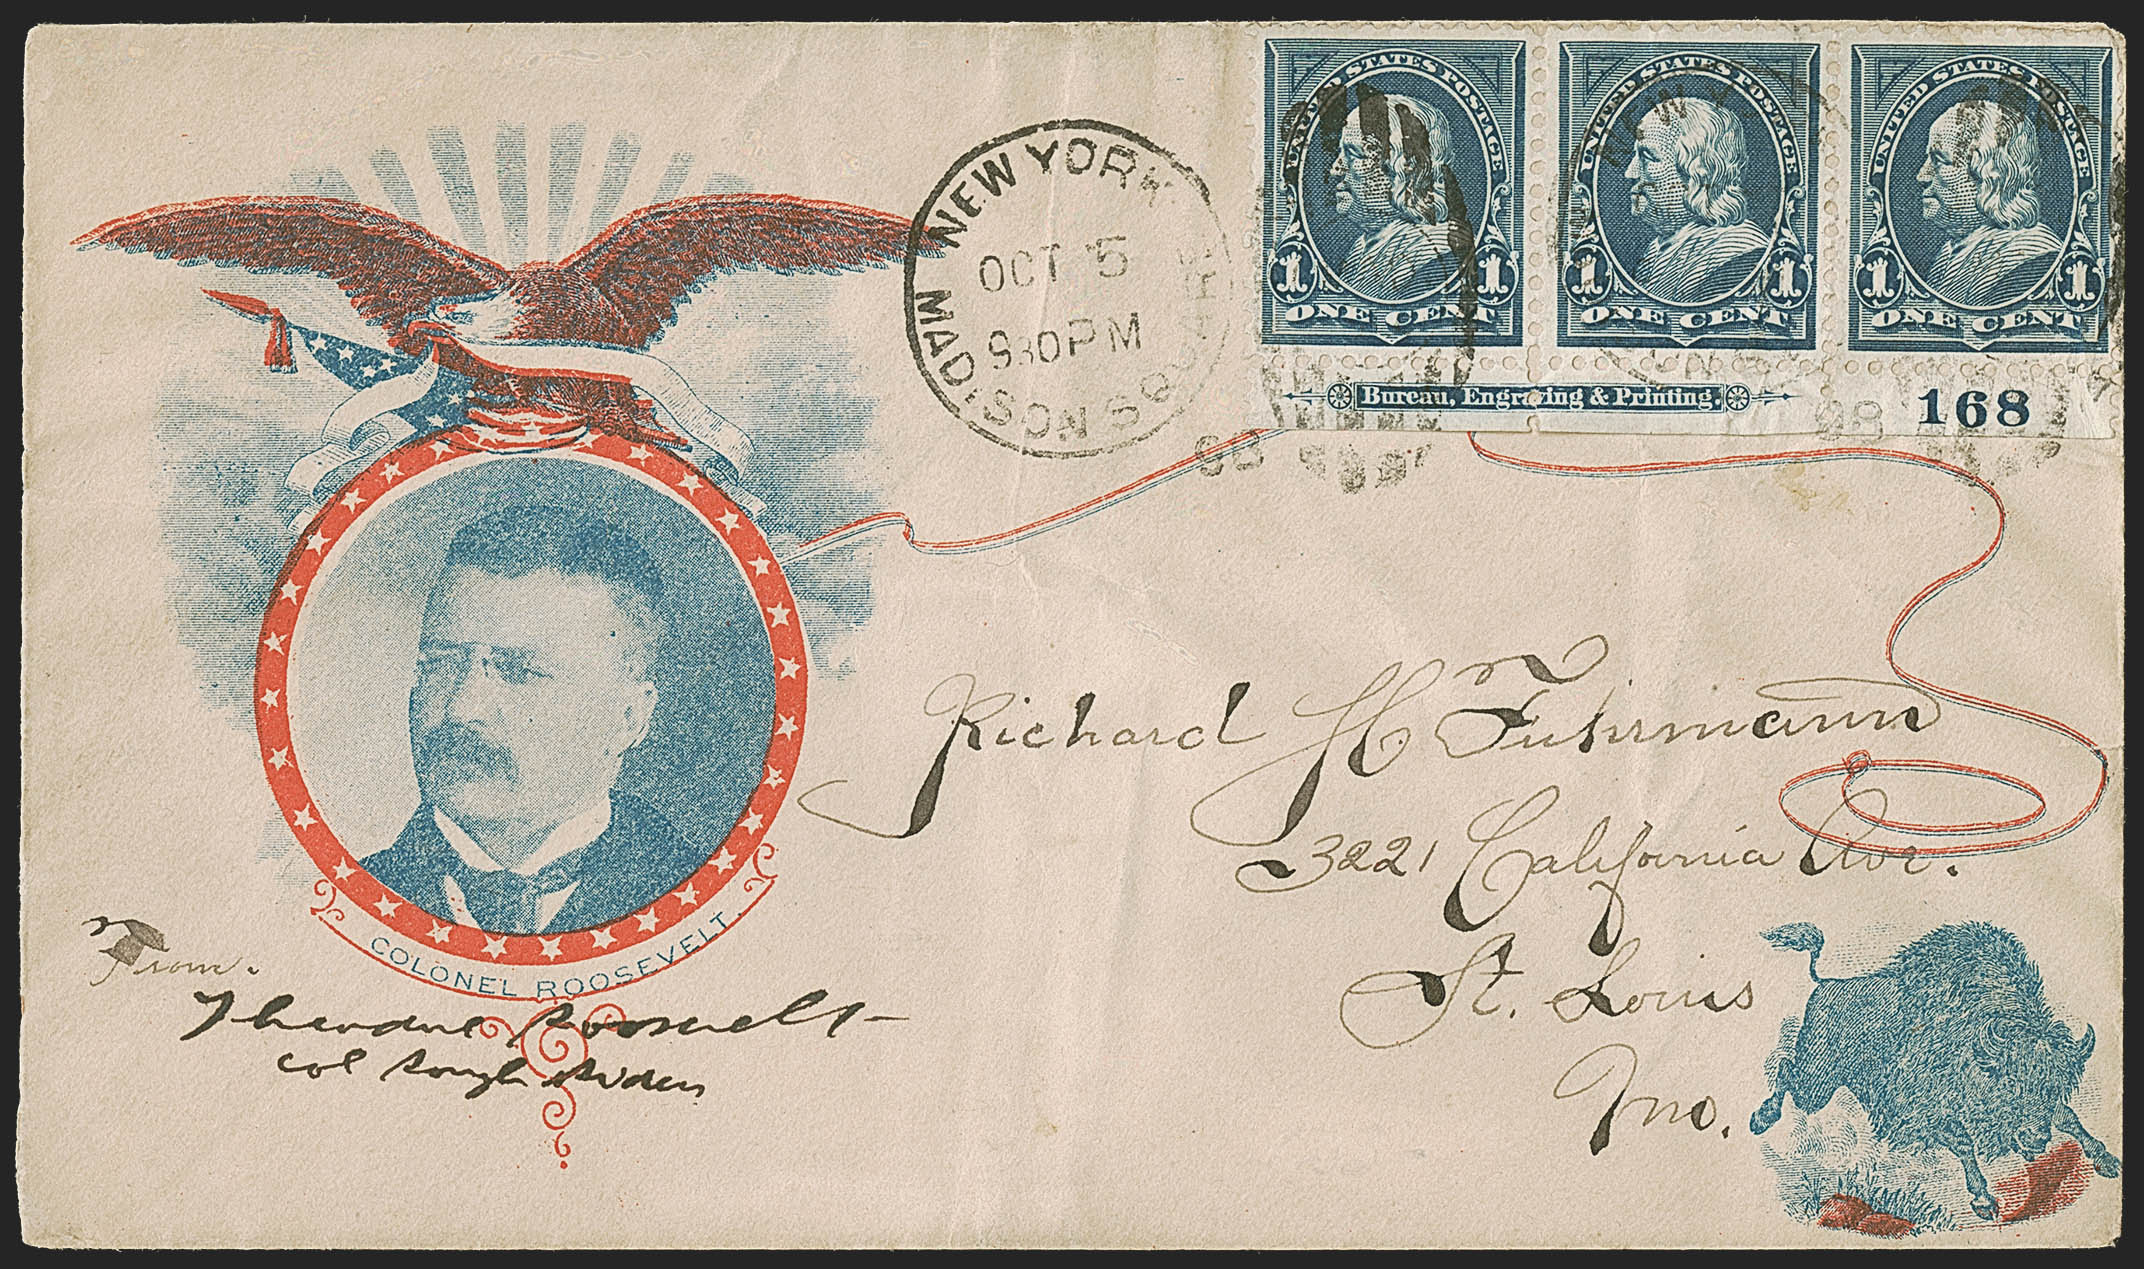 UNITED STATES POSTAGE
1 1
ONE CENT
UNITED STATES POSTAGE
1 1
ONE CENT
UNITED STATES POSTAGE
1 1
ONE CENT
Bureau, Engraving & Printing.
168
NEW YORK
OCT 5
930PM
MADISON SQUARE
98
NEW Y
98
Richard H. Fuhrmann
3221 California Ave.
St. Louis
Mo.
COLONEL ROOSEVELT.
From.
Theodore Roosevelt
Col Rough Riders